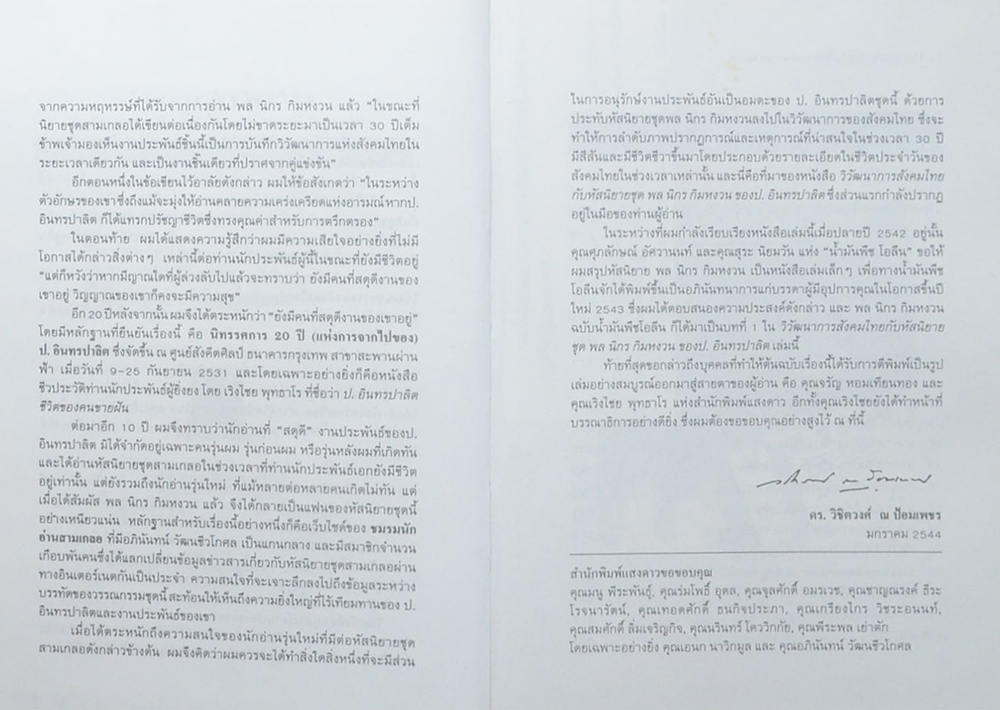 จากความหฤหรรษ์ที่ได้รับจากการอ่าน พล นิกร กิมหงวน แล้ว “ในขณะที่
นิยายชุดสามเกลอได้เขียนต่อเนื่องกันโดยไม่ขาดระยะมาเป็นเวลา 30 ปีเต็ม
ข้าพเจ้ามองเห็นงานประพันธ์ชิ้นนี้เป็นการบันทึกวิวัฒนาการแห่งสังคมไทยใน
ระยะเวลาเดียวกัน และเป็นงานชิ้นเดียวที่ปราศจากคู่แข่งขัน”
อีกตอนหนึ่งในข้อเขียนไว้อาลัยดังกล่าว ผมให้ข้อสังเกตว่า “ในระหว่าง
ตัวอักษรของเขาซึ่งถึงแม้จะมุ่งให้อ่านคลายความเคร่งเครียดแห่งอารมณ์หากป.
อินทรปาลิต ก็ได้แทรกปรัชญาชีวิตซึ่งทรงคุณค่าสำหรับการตรึกตรอง”
ในตอนท้าย ผมได้แสดงความรู้สึกว่าผมมีความเสียใจอย่างยิ่งที่ไม่มี
โอกาสได้กล่าวสิ่งต่างๆ เหล่านี้ต่อท่านนักประพันธ์ผู้นี้ในขณะที่ยังมีชีวิตอยู่
“แต่ก็หวังว่าหากมีญาณใดที่ผู้ล่วงลับไปแล้วจะทราบว่า ยังมีคนที่สดุดีงานของ
เขาอยู่ วิญญาณของเขาก็คงจะมีความสุข”
อีก 20 ปีหลังจากนั้น ผมจึงได้ตระหนักว่า “ยังมีคนที่สดุดีงานของเขาอยู่”
โดยมีหลักฐานที่ยืนยันเรื่องนี้ คือ นิทรรศการ 20 ปี (แห่งการจากไปของ)
ป. อินทรปาลิต ซึ่งจัดขึ้น ณ ศูนย์สังคีตศิลป์ ธนาคารกรุงเทพ สาขาสะพานผ่าน
ฟ้า เมื่อวันที่ 9-25 กันยายน 2531 และโดยเฉพาะอย่างยิ่งก็คือหนังสือ
ชีวประวัติท่านนักประพันธ์ผู้ยิ่งยง โดย เริงไชย พุทธาโร ที่ชื่อว่า ป. อินทรปาลิต
ชีวิตของคนขายฝัน
ต่อมาอีก 10 ปี ผมจึงทราบว่านักอ่านที่ “สดุดี” งานประพันธ์ของป.
อินทรปาลิต มิได้จำกัดอยู่เฉพาะคนรุ่นผม รุ่นก่อนผม หรือรุ่นหลังผมที่เกิดทัน
และได้อ่านหัสนิยายชุดสามเกลอในช่วงเวลาที่ท่านนักประพันธ์เอกยังมีชีวิต
อยู่เท่านั้น แต่ยังรวมถึงนักอ่านรุ่นใหม่ ที่แม้หลายต่อหลายคนเกิดไม่ทัน แต่
เมื่อได้สัมผัส พล นิกร กิมหงวน แล้ว จึงได้กลายเป็นแฟนของหัสนิยายชุดนี้
อย่างเหนียวแน่น หลักฐานสำหรับเรื่องนี้อย่างหนึ่งก็คือเว็บไซต์ของ ชมรมนัก
อ่านสามเกลอ ที่มีอภินันทน์ วัฒนชีวโกศล เป็นแกนกลาง และมีสมาชิกจำนวน
เกือบพันคนซึ่งได้แลกเปลี่ยนข้อมูลข่าวสารเกี่ยวกับหัสนิยายชุดสามเกลอผ่าน
ทางอินเตอร์เนตกันเป็นประจำ ความสนใจที่จะเจาะลึกลงไปถึงข้อมูลระหว่าง
บรรทัดของวรรณกรรมชุดนี้ สะท้อนให้เห็นถึงความยิ่งใหญ่ที่ไร้เทียมทานของ ป.
อินทรปาลิตและงานประพันธ์ของเขา
เมื่อได้ตระหนักถึงความสนใจของนักอ่านรุ่นใหม่ที่มีต่อหัสนิยายชุด
สามเกลอดังกล่าวข้างต้น ผมจึงคิดว่าผมควรจะได้ทำสิ่งใดสิ่งหนึ่งที่จะมีส่วน
ในการอนุรักษ์งานประพันธ์อันเป็นอมตะของ ป. อินทรปาลิตชุดนี้ ด้วยการ
ประทับหัสนิยายชุดพล นิกร กิมหงวนลงไปในวิวัฒนาการของสังคมไทย ซึ่งจะ
ทำให้การลำดับภาพปรากฏการณ์และเหตุการณ์ที่น่าสนใจในช่วงเวลา 30 ปี
มีสีสันและมีชีวิตชีวาขึ้นมาโดยประกอบด้วยรายละเอียดในชีวิตประจำวันของ
สังคมไทยในช่วงเวลาเหล่านั้น และนี่คือที่มาของหนังสือ วิวัฒนาการสังคมไทย
กับหัสนิยายชุด พล นิกร กิมหงวน ของป. อินทรปาลิต ซึ่งส่วนแรกกำลังปรากฏ
อยู่ในมือของท่านผู้อ่าน
ในระหว่างที่ผมกำลังเรียบเรียงหนังสือเล่มนี้เมื่อปลายปี 2542 อยู่นั้น
คุณศุภลักษณ์ อัศวานนท์ และคุณสุระ นิยมวัน แห่ง “น้ำมันพืช โอลีน” ขอให้
ผมสรุปหัสนิยาย พล นิกร กิมหงวน เป็นหนังสือเล่มเล็กๆ เพื่อทางน้ำมันพืช
โอลีนจักได้พิมพ์ขึ้นเป็นอภินันทนาการแก่บรรดาผู้มีอุปการคุณในโอกาสขึ้นปี
ใหม่ 2543 ซึ่งผมได้ตอบสนองความประสงค์ดังกล่าว และ พล นิกร กิมหงวน
ฉบับน้ำมันพืชโอลีน ก็ได้มาเป็นบทที่ 1 ใน วิวัฒนาการสังคมไทยกับหัสนิยาย
ชุด พล นิกร กิมหงวน ของป. อินทรปาลิต เล่มนี้
ท้ายที่สุดขอกล่าวถึงบุคคลที่ทำให้ต้นฉบับเรื่องนี้ได้รับการตีพิมพ์เป็นรูป
เล่มอย่างสมบูรณ์ออกมาสู่สายตาของผู้อ่าน คือ คุณจรัญ หอมเทียนทอง และ
คุณเริงไชย พุทธาโร แห่งสำนักพิมพ์แสงดาว อีกทั้งคุณเริงไชยยังได้ทำหน้าที่
บรรณาธิการอย่างดียิ่ง ซึ่งผมต้องขอขอบคุณอย่างสูงไว้ ณ ที่นี้
ดร. วิชิตวงศ์ ณ ป้อมเพชร
มกราคม 2544
สำนักพิมพ์แสงดาวขอขอบคุณ
คุณมนู พีระพันธุ์, คุณร่มโพธิ์ อุดล, คุณจุลศักดิ์ อมรเวช, คุณชาญณรงค์ ธีระ
โรจนารัตน์, คุณเทอดศักดิ์ ธนกิจประภา, คุณเกรียงไกร วิชระอนนท์,
คุณสมศักดิ์ ลิ่มเจริญกิจ, คุณนรินทร์ โควิวิกกัย, คุณพีระพล เย่าตัก
โดยเฉพาะอย่างยิ่ง คุณเอนก นาวิกมูล และ คุณอภินันทน์ วัฒนชีวโกศล